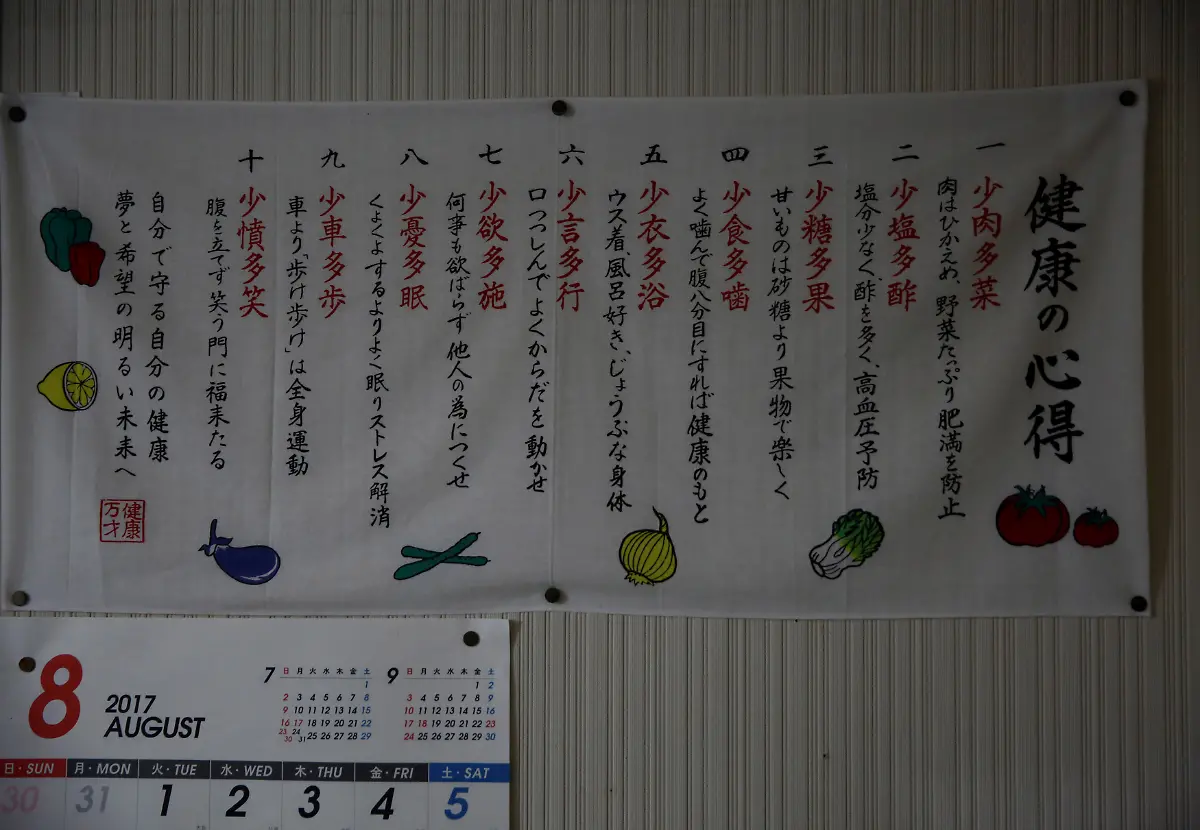 健康の心得
一 少肉多菜
肉はひかえめ、野菜たっぷり肥満を防止
二 少塩多酢
塩分少なく、酢を多く、高血圧予防
三 少糖多果
甘いものは砂糖より果物で楽しく
四 少食多噛
よく噛んで腹八分目にすれば健康のもと
五 少衣多浴
ウス着、風呂好き、じょうぶな身体
六 少言多行
口つつしんでよくからだを動かせ
七 少欲多施
何事も欲ばらず他人の為につくせ
八 少憂多眠
くよくよするよりよく眠りストレス解消
九 少車多歩
車より「歩け歩け」は全身運動
十 少憤多笑
腹を立てず笑う門に福来たる
自分で守る自分の健康
夢と希望の明るい未来へ
健康
万才
8
2017
AUGUST
7
日 月 火 水 木 金 土
1
2 3 4 5 6 7 8
9 10 11 12 13 14 15
16 17 18 19 20 21 22
23 24 25 26 27 28 29
30 31
9
日 月 火 水 木 金 土
1 2
3 4 5 6 7 8 9
10 11 12 13 14 15 16
17 18 19 20 21 22 23
24 25 26 27 28 29 30
日・SUN 月・MON 火・TUE 水・WED 木・THU 金・FRI 土・SAT
30 31 1 2 3 4 5